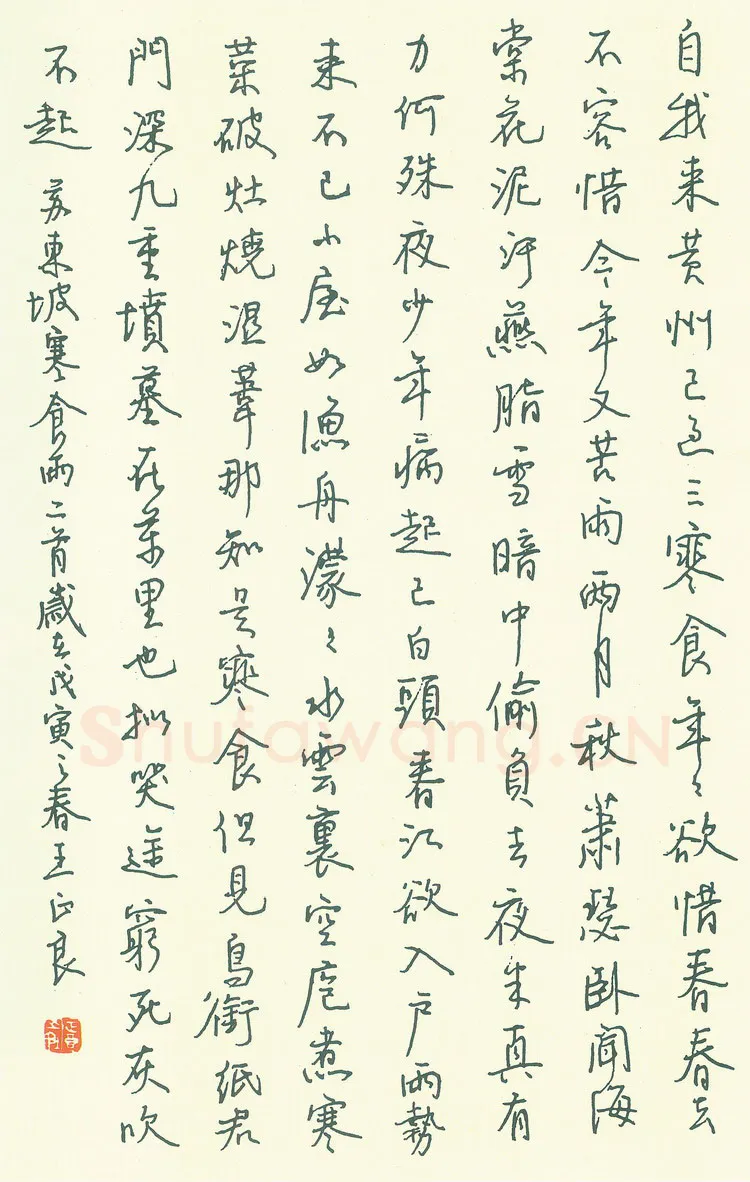 自我来黄州已过三寒食年々欲惜春春去
不容惜今年又苦雨兩月秋蕭瑟卧聞海
棠花泥汙燕脂雪暗中偷負去夜半真有
力何殊夜少年病起已白頭春江欲入户雨勢
来不已小屋如漁舟濛々水雲裏空庖煮寒
菜破灶燒濕葦那知是寒食但見烏銜紙君
門深九重墳墓在萬里也拟哭途窮死灰吹
不起 蘇東坡寒食雨二首歲在戊寅之春王正良
Shufawang.CN